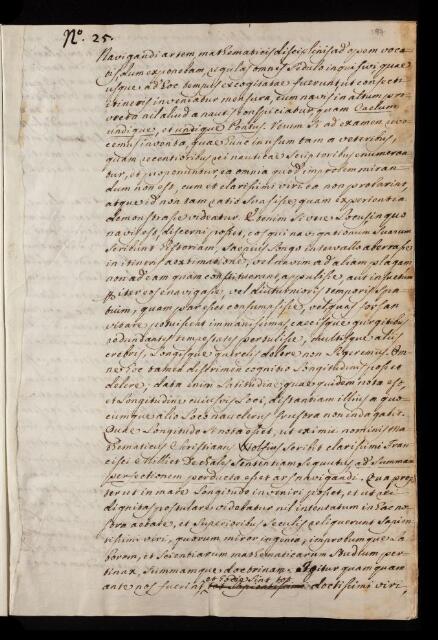 Nº. 25.
Navigandi artem mathematicis disciplinis ad opem voca
vi, dum exponebam, regulas omnes sedulo inquisivi quae
usque ad hoc tempus excogitatae fuerunt, ut confecti
itineris inveniatur mensura, cum navis in altum pro
vecta nil aliud a nauta conspiciatur quam Caelum
undique, et undique Pontus. Verum si ad examen revo
cemus inventa, quae hunc in usum tam a veteribus,
quam recentioribus rei nauticae scriptoribus enumeran
tur, et proponuntur, ea omnia quod improbem miran
dum non est, cum et clarissimi viri ea non probarint,
atque id non tam ratio suasisse, quam experientia
demonstrasse videatur. Etenim si vere locus in quo
navis est discerni posset, eos qui navigationum suarum
scribunt historiam, saepius longo intervallo aberrasse
in itineris aestimatione, vel navim ad aliam plagam
non ad eam quam constituerant, appulisse, aut infectum
iter eos enavigasse, vel diuturnioris temporis spa
tium, quam par esset consumsisse, vel quas forsan
vitare potuissent immanissimas caecisque gurgitibus
redundantes tempestates pertulisse, multisque aliis
crebris, longisque querelis dolere non legeremus. Om
ne hoc tamen detrimen cognitio Longitudinis posset
delere; data enim Latitudine, quae quidem nota est,
et Longitudine cuiusvis loci, distantiam illius a quo
cumque alio loco nauclerus frustra non indagabit.
Quae Longitudo si nota esset, ut eximii nominis Ma
thematicus Christianus Wolfius scribit clarissimi Fran
cisci Milliet De Chales sententiam sequutus, ad summam
perfectionem perducta esset ars navigandi. Qua prop
ter ut in mare Longitudo inveniri posset, et ut rei
dignitas postulare videbatur nil intentatum in hac no
stra aetate, et superioribus seculis reliquerunt sapien
tissimi viri, quorum miror ingenio, improbumque la
borem, et scientiarum mathematicarum studium per
tinax, summamque doctrinam. Igitur quamquam
ante nos fuerint, et hodie sint top doctissimi viri,